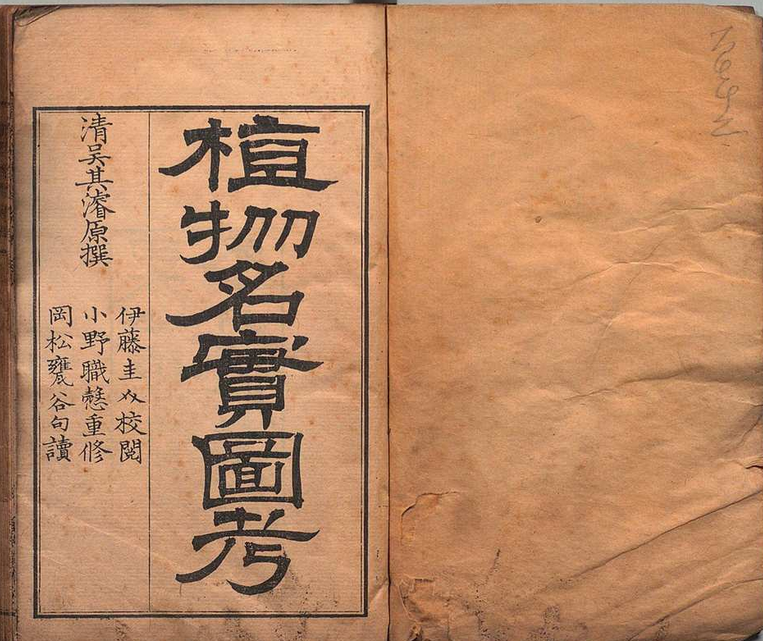 植物名實圖考
清吳其濬原撰
伊藤圭介校閱
小野職愨重修
岡松甕谷句讀